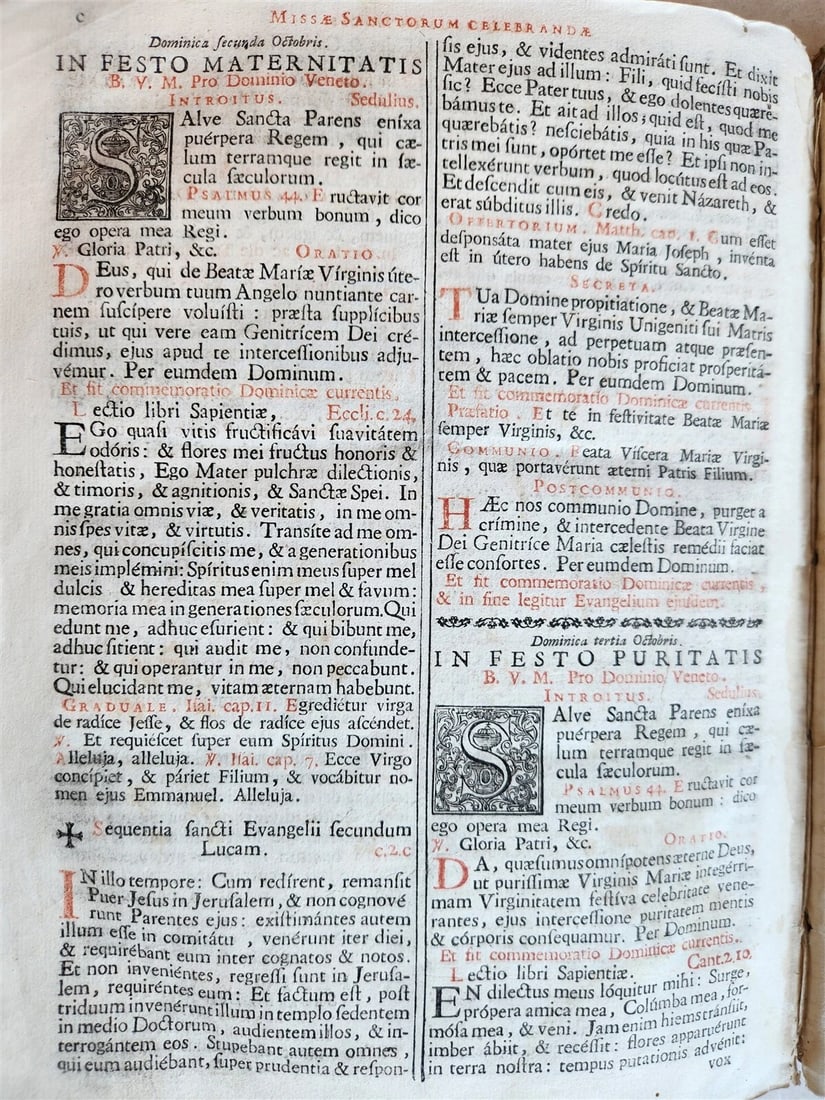 c
MISSÆ SANCTORUM CELEBRANDÆ
Dominica secunda Octobris.
IN FESTO MATERNITATIS
B. V. M. Pro Dominio Veneto.
INTROITUS. Sedulius.
SAlve Sancta Parens eníxa
puérpera Regem , qui cæ-
lum terramque regit in sæ-
cula sæculorum.
PSALMUS 44. Eructavit cor
meum verbum bonum , dico
ego opera mea Regi.
℣. Gloria Patri, &c. ORATIO.
DEus, qui de Beatæ Maríæ Vírginis úte-
ro verbum tuum Angelo nuntiante car-
nem suscípere voluísti : præsta supplícibus
tuis, ut qui vere eam Genitrícem Dei cré-
dimus, ejus apud te intercessiónibus adju-
vémur. Per eumdem Dominum.
Et fit commemoratio Dominicæ currentis.
Lectio libri Sapientiæ, Eccli. c. 24,
EGo quasi vitis fructificávi suavitátem
odóris: & flores mei fructus honoris &
honestatis, Ego Mater pulchræ dilectiónis,
& timoris, & agnitionis, & Sanctæ Spei. In
me gratia omnis viæ, & veritatis, in me om-
nis spes vitæ, & virtutis. Transíte ad me om-
nes, qui concupíscitis me, & a generationibus
meis implémini: Spíritus enim meus super mel
dulcis & hereditas mea super mel & favum:
memoria mea in generationes sæculorum. Qui
edunt me, adhuc esurient: & qui bibunt me,
adhuc sitient: qui audit me, non confunde-
tur: & qui operantur in me, non peccabunt.
Qui elucidant me, vitam æternam habebunt.
GRADUALE. Isai. cap. 11. Egrediétur virga
de radíce Jesse, & flos de radíce ejus ascéndet.
℣. Et requiéscet super eum Spíritus Domini.
Alleluja, alleluja. ℣. Isai. cap. 7. Ecce Virgo
concípiet, & páriet Filium, & vocábitur no-
men ejus Emmanuel. Alleluja.
✠ Sequentia sancti Evangelii secundum
Lucam. c. 2. c
IN illo tempore: Cum redírent, remansit
Puer Jesus in Jerusalem, & non cognové
runt Parentes ejus: existimántes autem
illum esse in comitátu , venérunt iter diei,
& requirébant eum inter cognatos & notos.
Et non inveniéntes, regressi sunt in Jerusa-
lem, requiréntes eum: Et factum est, post
triduum invenérunt illum in templo sedentem
in medio Doctorum, audientem illos, & in-
terrogántem eos. Stupebant autem omnes ,
qui eum audiébant, super prudentia & respon-
sis ejus, & videntes admiráti sunt. Et dixit
Mater ejus ad illum: Fili, quid fecísti nobis
sic? Ecce Pater tuus, & ego dolentes quære-
bámus te. Et ait ad illos; quid est, quod me
quærebátis? nesciebátis, quia in his quæ Pa-
tris mei sunt, opórtet me esse? Et ipsi non in-
tellexérunt verbum, quod locútus est ad eos.
Et descendit cum eis, & venit Názareth, &
erat súbditus illis. Credo.
OFFERTORIUM. Matth. cap. 1. Cum esset
desponsáta mater ejus Maria Joseph , invénta
est in útero habens de Spíritu Sancto.
SECRETA.
TUa Domine propitiatione, & Beatæ Ma-
riæ semper Virginis Unigeniti sui Matris
intercessione , ad perpetuam atque præsen-
tem , hæc oblatio nobis proficiat prosperitá-
tem & pacem. Per eumdem Dominum.
Et fit commemoratio Dominicæ currentis.
Præfatio. Et te in festivitate Beatæ Mariæ
semper Virginis, &c.
COMMUNIO. Beata Víscera Mariæ Virgi-
nis , quæ portavérunt æterni Patris Filium.
POSTCOMMUNIO.
HÆc nos communio Domine, purget a
crímine, & intercedente Beata Virgine
Dei Genitríce Maria cælestis remédii faciat
esse consortes. Per eumdem Dominum.
Et fit commemoratio Dominicæ currentis,
& in fine legitur Evangelium ejusdem.
Dominica tertia Octobris.
IN FESTO PURITATIS
B. V. M. Pro Dominio Veneto.
INTROITUS. Sedulius.
SAlve Sancta Parens eníxa
puérpera Regem , qui cæ-
lum terramque regit in sæ-
cula sæculorum.
PSALMUS 44. Eructavit cor
meum verbum bonum : dico
ego opera mea Regi.
℣. Gloria Patri, &c. ORATIO.
DA, quæsumus omnípotens æterne Deus,
ut purissimæ Virginis Mariæ integérri-
mam Virginitatem festíva celebritate vene-
rantes, ejus intercessione puritatem mentis
& córporis consequamur. Per Dominum.
Et fit commemoratio Dominicæ currentis.
Lectio libri Sapientiæ. Cant. 2. 10.
EN dilectus meus lóquitur mihi: Surge,
própera amica mea, Colúmba mea, for-
mósa mea, & veni. Jam enim hiems tránsiit,
imber ábiit, & recéssit: flores apparuérunt
in terra nostra: tempus putationis advénit:
vox